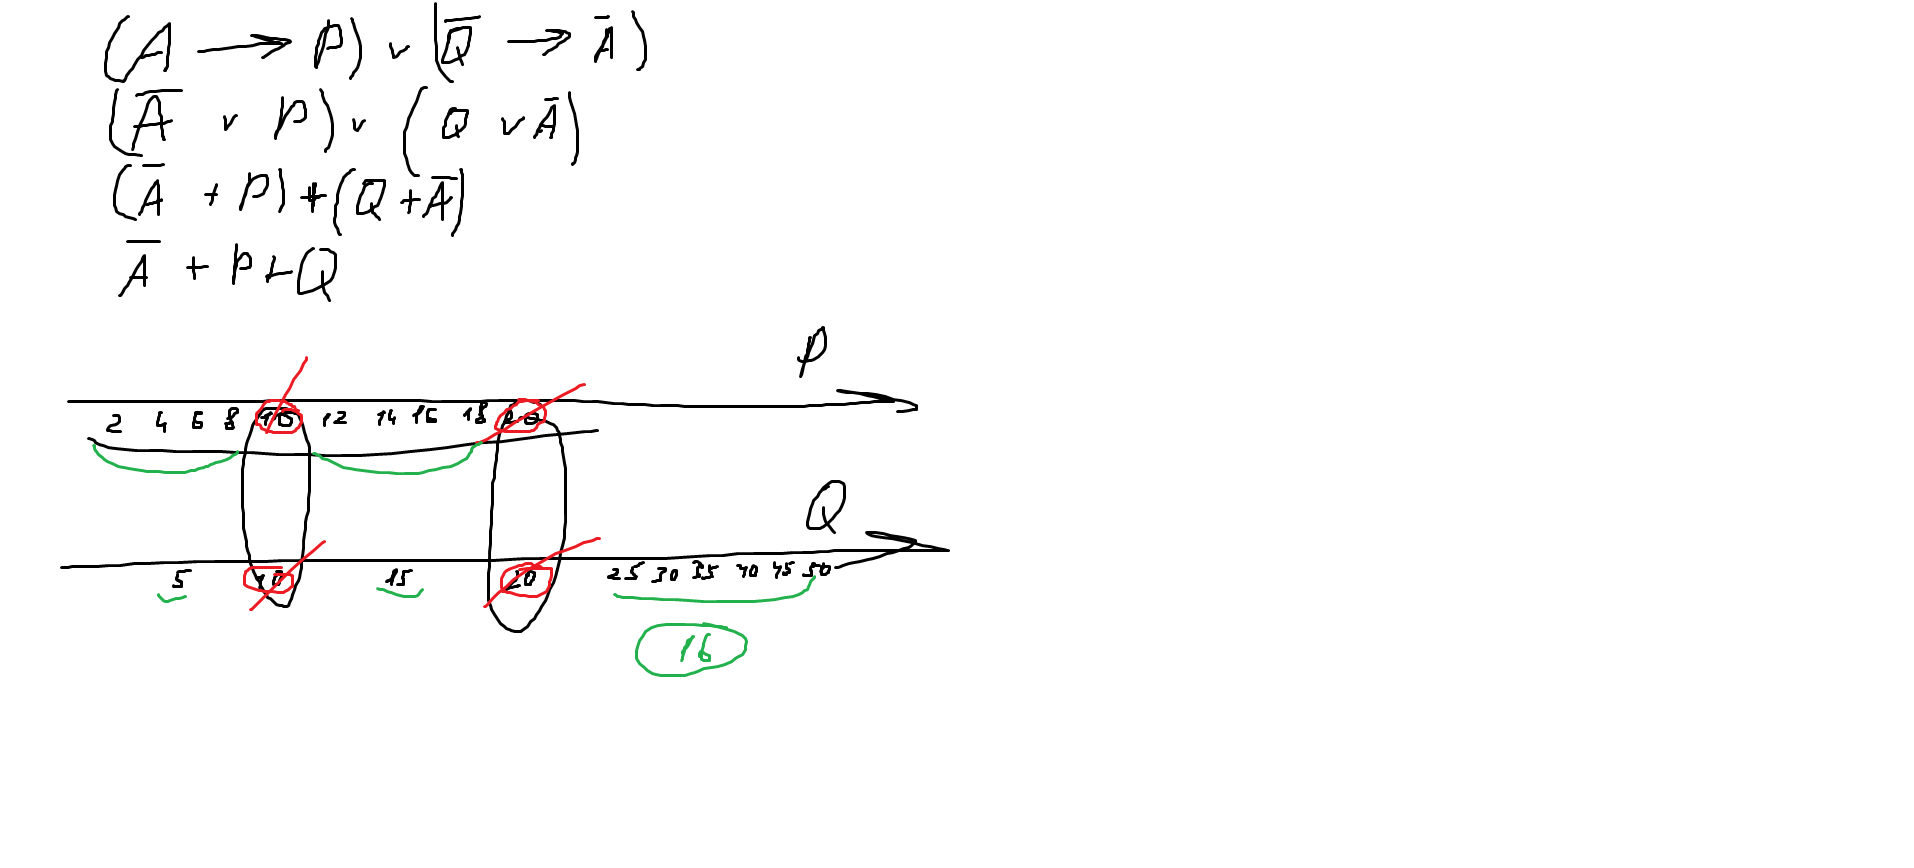 (A → P) ∨ (Q̅ → A̅)
(A̅ ∨ P) ∨ (Q ∨ A̅)
(A̅ + P) + (Q + A̅)
A̅ + P + Q
P
2 4 6 8 10 12 14 16 18 20
Q
5 10 15 20 25 30 35 40 45 50
16